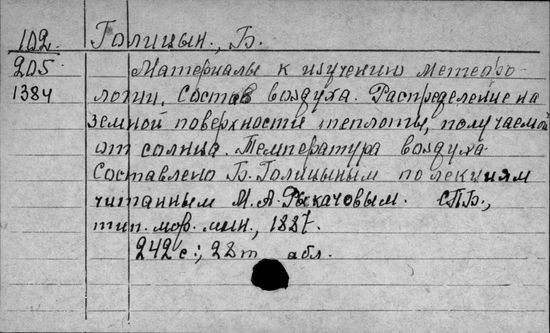 102. Голицын., Б.
205 Материалы к изучению метеоро-
1384 логии. Состав воздуха. Распределение на
земной поверхности теплоты, получаемой
от солнца. Температура воздуха.
Составлено Б. Голицыным по лекциям
читанным М. А. Рыкачовым. СПБ.,
тип. мор. мин., 1887.
242 с.; 28 т абл.